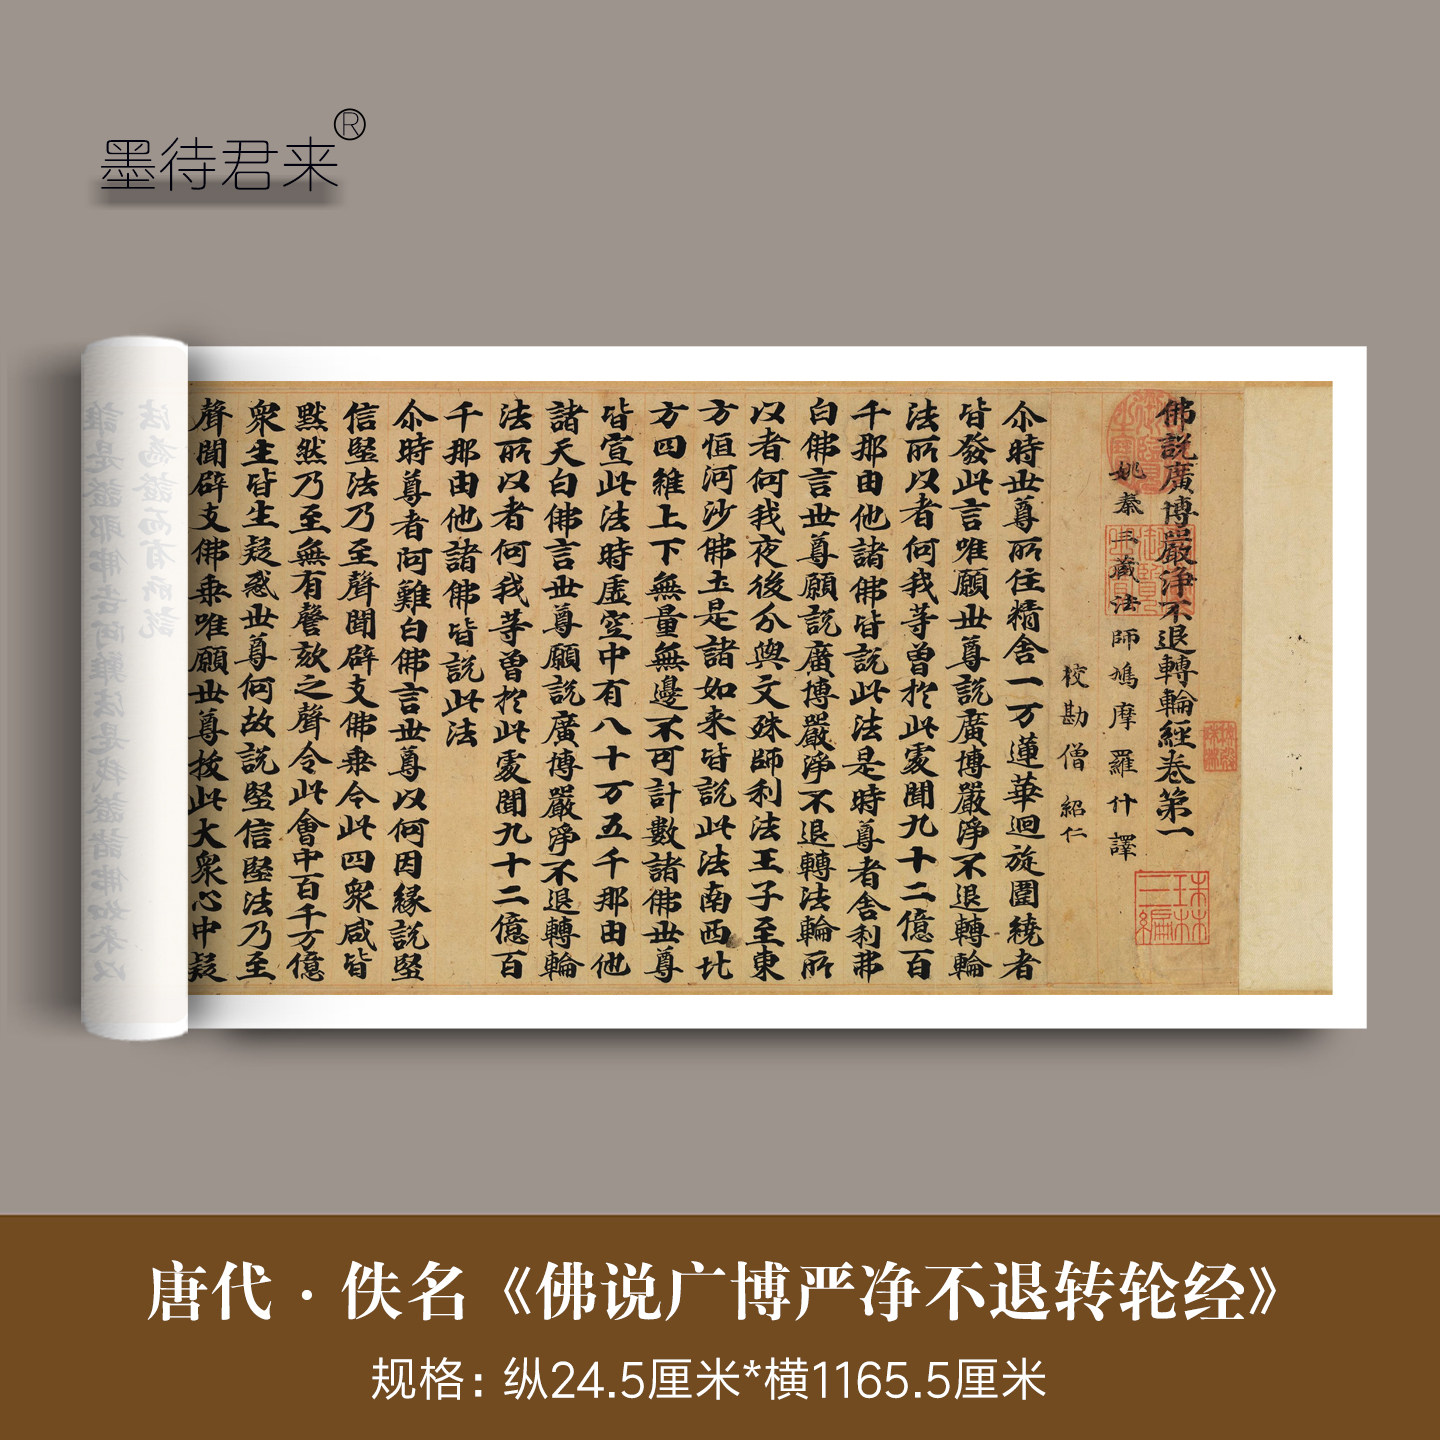 墨待君来®
佛説廣博嚴淨不退轉輪經卷第一
姚秦三藏法師鳩摩羅什譯
校勘僧紹仁
尒時世尊所住精舍一万蓮華迴旋圍繞者
皆發此言唯願世尊説廣博嚴淨不退轉輪
法所以者何我等曾於此處聞九十二億百
千那由他諸佛皆説此法是時尊者舎利弗
白佛言世尊願説廣博嚴淨不退轉法輪所
以者何我夜後分與文殊師利法王子至東
方恒河沙佛土是諸如来皆説此法南西北
方四維上下無量無邊不可計數諸佛世尊
皆宣此法時虚空中有八十万五千那由他
諸天白佛言世尊願説廣博嚴淨不退轉輪
法所以者何我等曾於此處聞九十二億百
千那由他諸佛皆説此法
尒時尊者阿難白佛言世尊以何因縁説堅
信堅法乃至聲聞辟支佛乗令此四衆咸皆
黙然乃至無有謦欬之聲令此會中百千万億
衆生皆生疑惑世尊何故説堅信堅法乃至
聲聞辟支佛乗唯願世尊拔此大衆心中疑
珠林三編
唐代·佚名《佛说广博严净不退转轮经》
规格：纵24.5厘米*横1165.5厘米